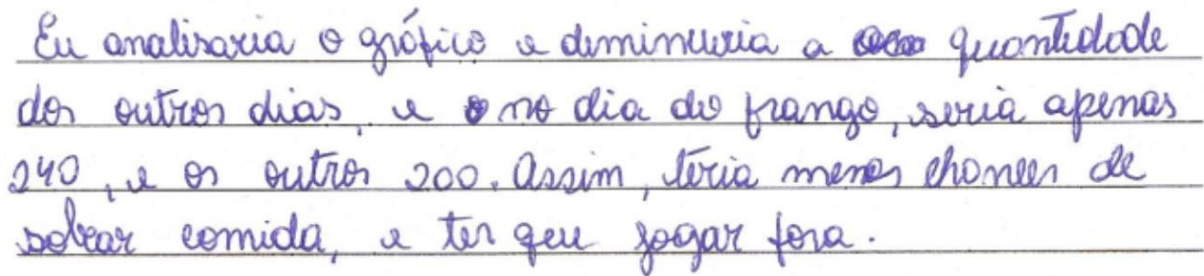 Eu analisaria o gráfico e deminuiria a quantidade
dos outros dias, e no dia do frango, seria apenas
240, e os outros 200. Assim, teria menos chances de
sobrar comida, e ter qeu jogar fora.